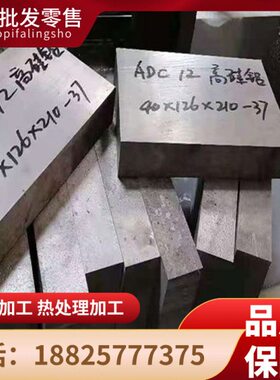 批发零售
opifalingsho
ADC 12 高硅铝
40×126×210-37
12 高硅铝
×126×210-37
加工 热处理加工
品
保
话：18825777375